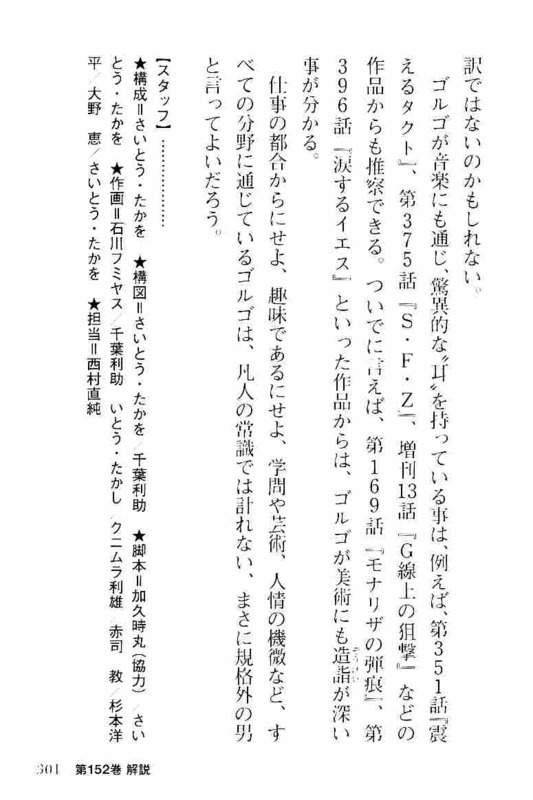 訳ではないのかもしれない。
　ゴルゴが音楽にも通じ、驚異的な〝耳〟を持っている事は、例えば、第351話『震
えるタクト』、第375話『S・F・Z』、増刊13話『G線上の狙撃』などの
作品からも推察できる。ついでに言えば、第169話『モナリザの弾痕』、第
396話『涙するイエス』といった作品からは、ゴルゴが美術にも造詣が深い
ぞうけい
事が分かる。
　仕事の都合からにせよ、趣味であるにせよ、学問や芸術、人情の機微など、す
べての分野に通じているゴルゴは、凡人の常識では計れない、まさに規格外の男
と言ってよいだろう。
【スタッフ】………………
★構成＝さいとう・たかを　★構図＝さいとう・たかを／千葉利助　★脚本＝加久時丸（協力）／さい
とう・たかを　★作画＝石川フミヤス／千葉利助　いとう・たかし／クニムラ利雄　赤司　教／杉本洋
平／大野　恵／さいとう・たかを　★担当＝西村直純
301　第152巻 解説